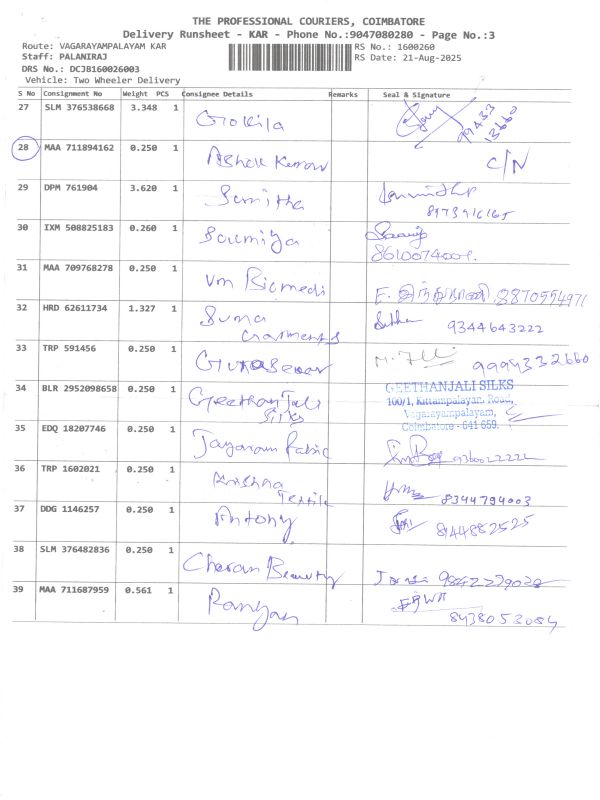 THE PROFESSIONAL COURIERS, COIMBATORE
Delivery Runsheet - KAR - Phone No.:9047080280 - Page No.:3
Route: VAGARAYAMPALAYAM KAR RS No.: 1600260
Staff: PALANIRAJ RS Date: 21-Aug-2025
DRS No.: DCJB160026003
Vehicle: Two Wheeler Delivery
S No Consignment No Weight PCS Consignee Details Remarks Seal & Signature
27 SLM 376538668 3.348 1 Gokila 99433
13660
28 MAA 711894162 0.250 1 Ashok Kumar C/N
29 DPM 761904 3.620 1 Sumitha
30 IXM 508825183 0.260 1 Soumiya
31 MAA 709768278 0.250 1 Vm Biomedi E. 8870554971
32 HRD 62611734 1.327 1 Suma
Garments 9344643222
33 TRP 591456 0.250 1 Gunasekar 9994332660
34 BLR 2952098658 0.250 1 Geethanjali
Silks
GEETHANJALI SILKS
100/1, Kittampalayan Road,
Vagarayampalayam,
Coimbatore - 641 659.
35 EDQ 18207746 0.250 1 Jayaram Fabric
36 TRP 1602021 0.250 1 Krishna
Textile 8344794003
37 DDG 1146257 0.250 1 Antony 8144882525
38 SLM 376482836 0.250 1 Charan Beauty
39 MAA 711687959 0.561 1 8438053084